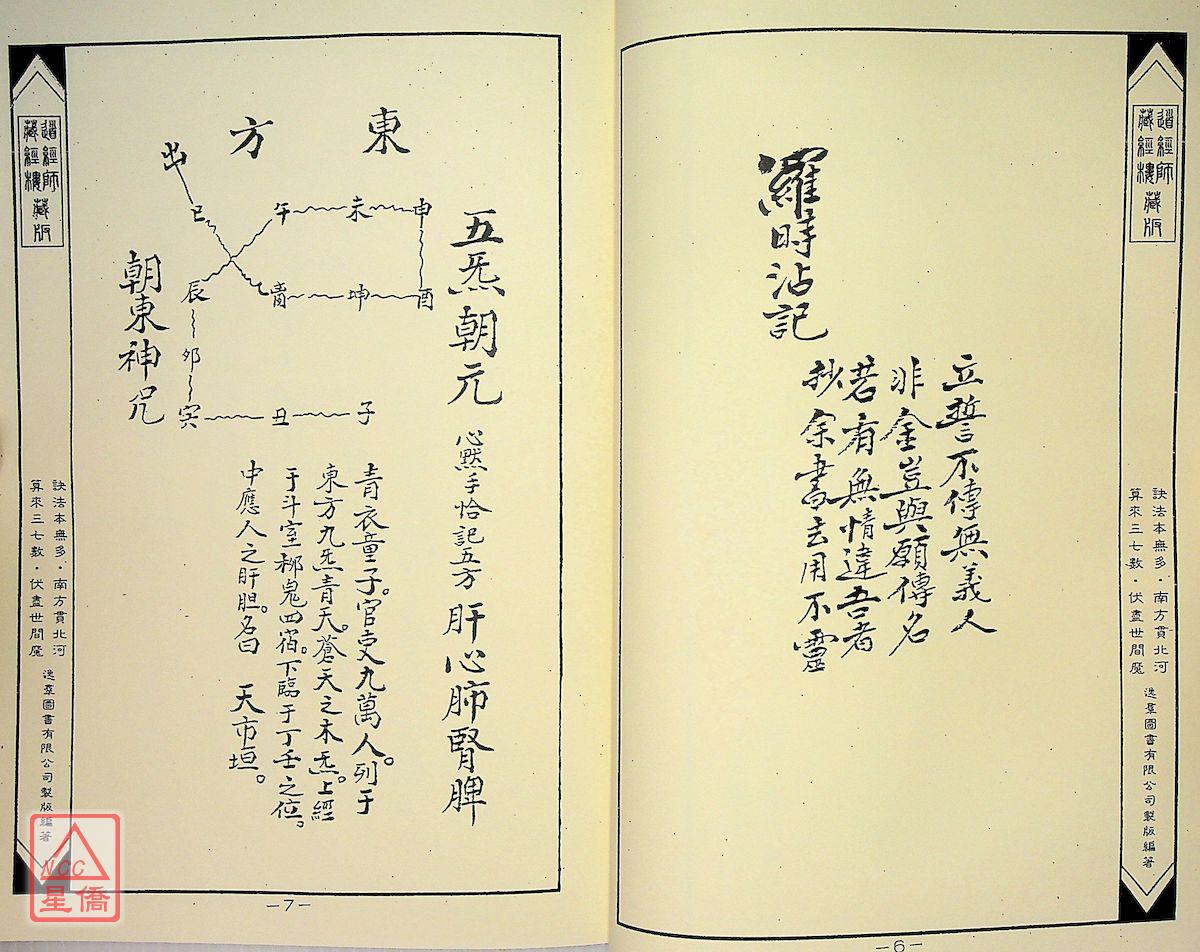 道經師
藏經樓
藏版
訣法本無多．南方貫北河
算來三七數．伏盡世間魔
逸羣圖書有限公司製版編著
立誓不傳無義人
非金豈與願傳名
若有無情違吾者
抄余書去用不靈
羅時沾記
—6—
東方
五炁朝元 心默手恰記五方 肝心肺腎脾
申 未 午 巳 出
酉 坤 辰
卯
子 丑 寅
青衣童子。官吏九萬人。列于
東方九炁青天。蒼天之木炁。上經
于斗室柳鬼四宿。下臨于丁壬之位。
中應人之肝胆。名曰 天市垣。
朝東神咒
道經師
藏經樓
藏版
訣法本無多．南方貫北河
算來三七數．伏盡世間魔
逸羣圖書有限公司製版編著
—7—
NCC
星僑